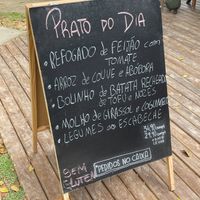 PRATO DO DIA
• REFOGADO de FEIJÃO com
TOMATE
• ARROZ de COUVE e ABÓBORA
• BOLINHO de BATATA RECHEADO
de TOFU e NOZES
• MOLHO de GIRASSOL e COGUMELO
• LEGUMES ao ESCABECHE
SEM
GLÚTEN
PEDIDOS NO CAIXA